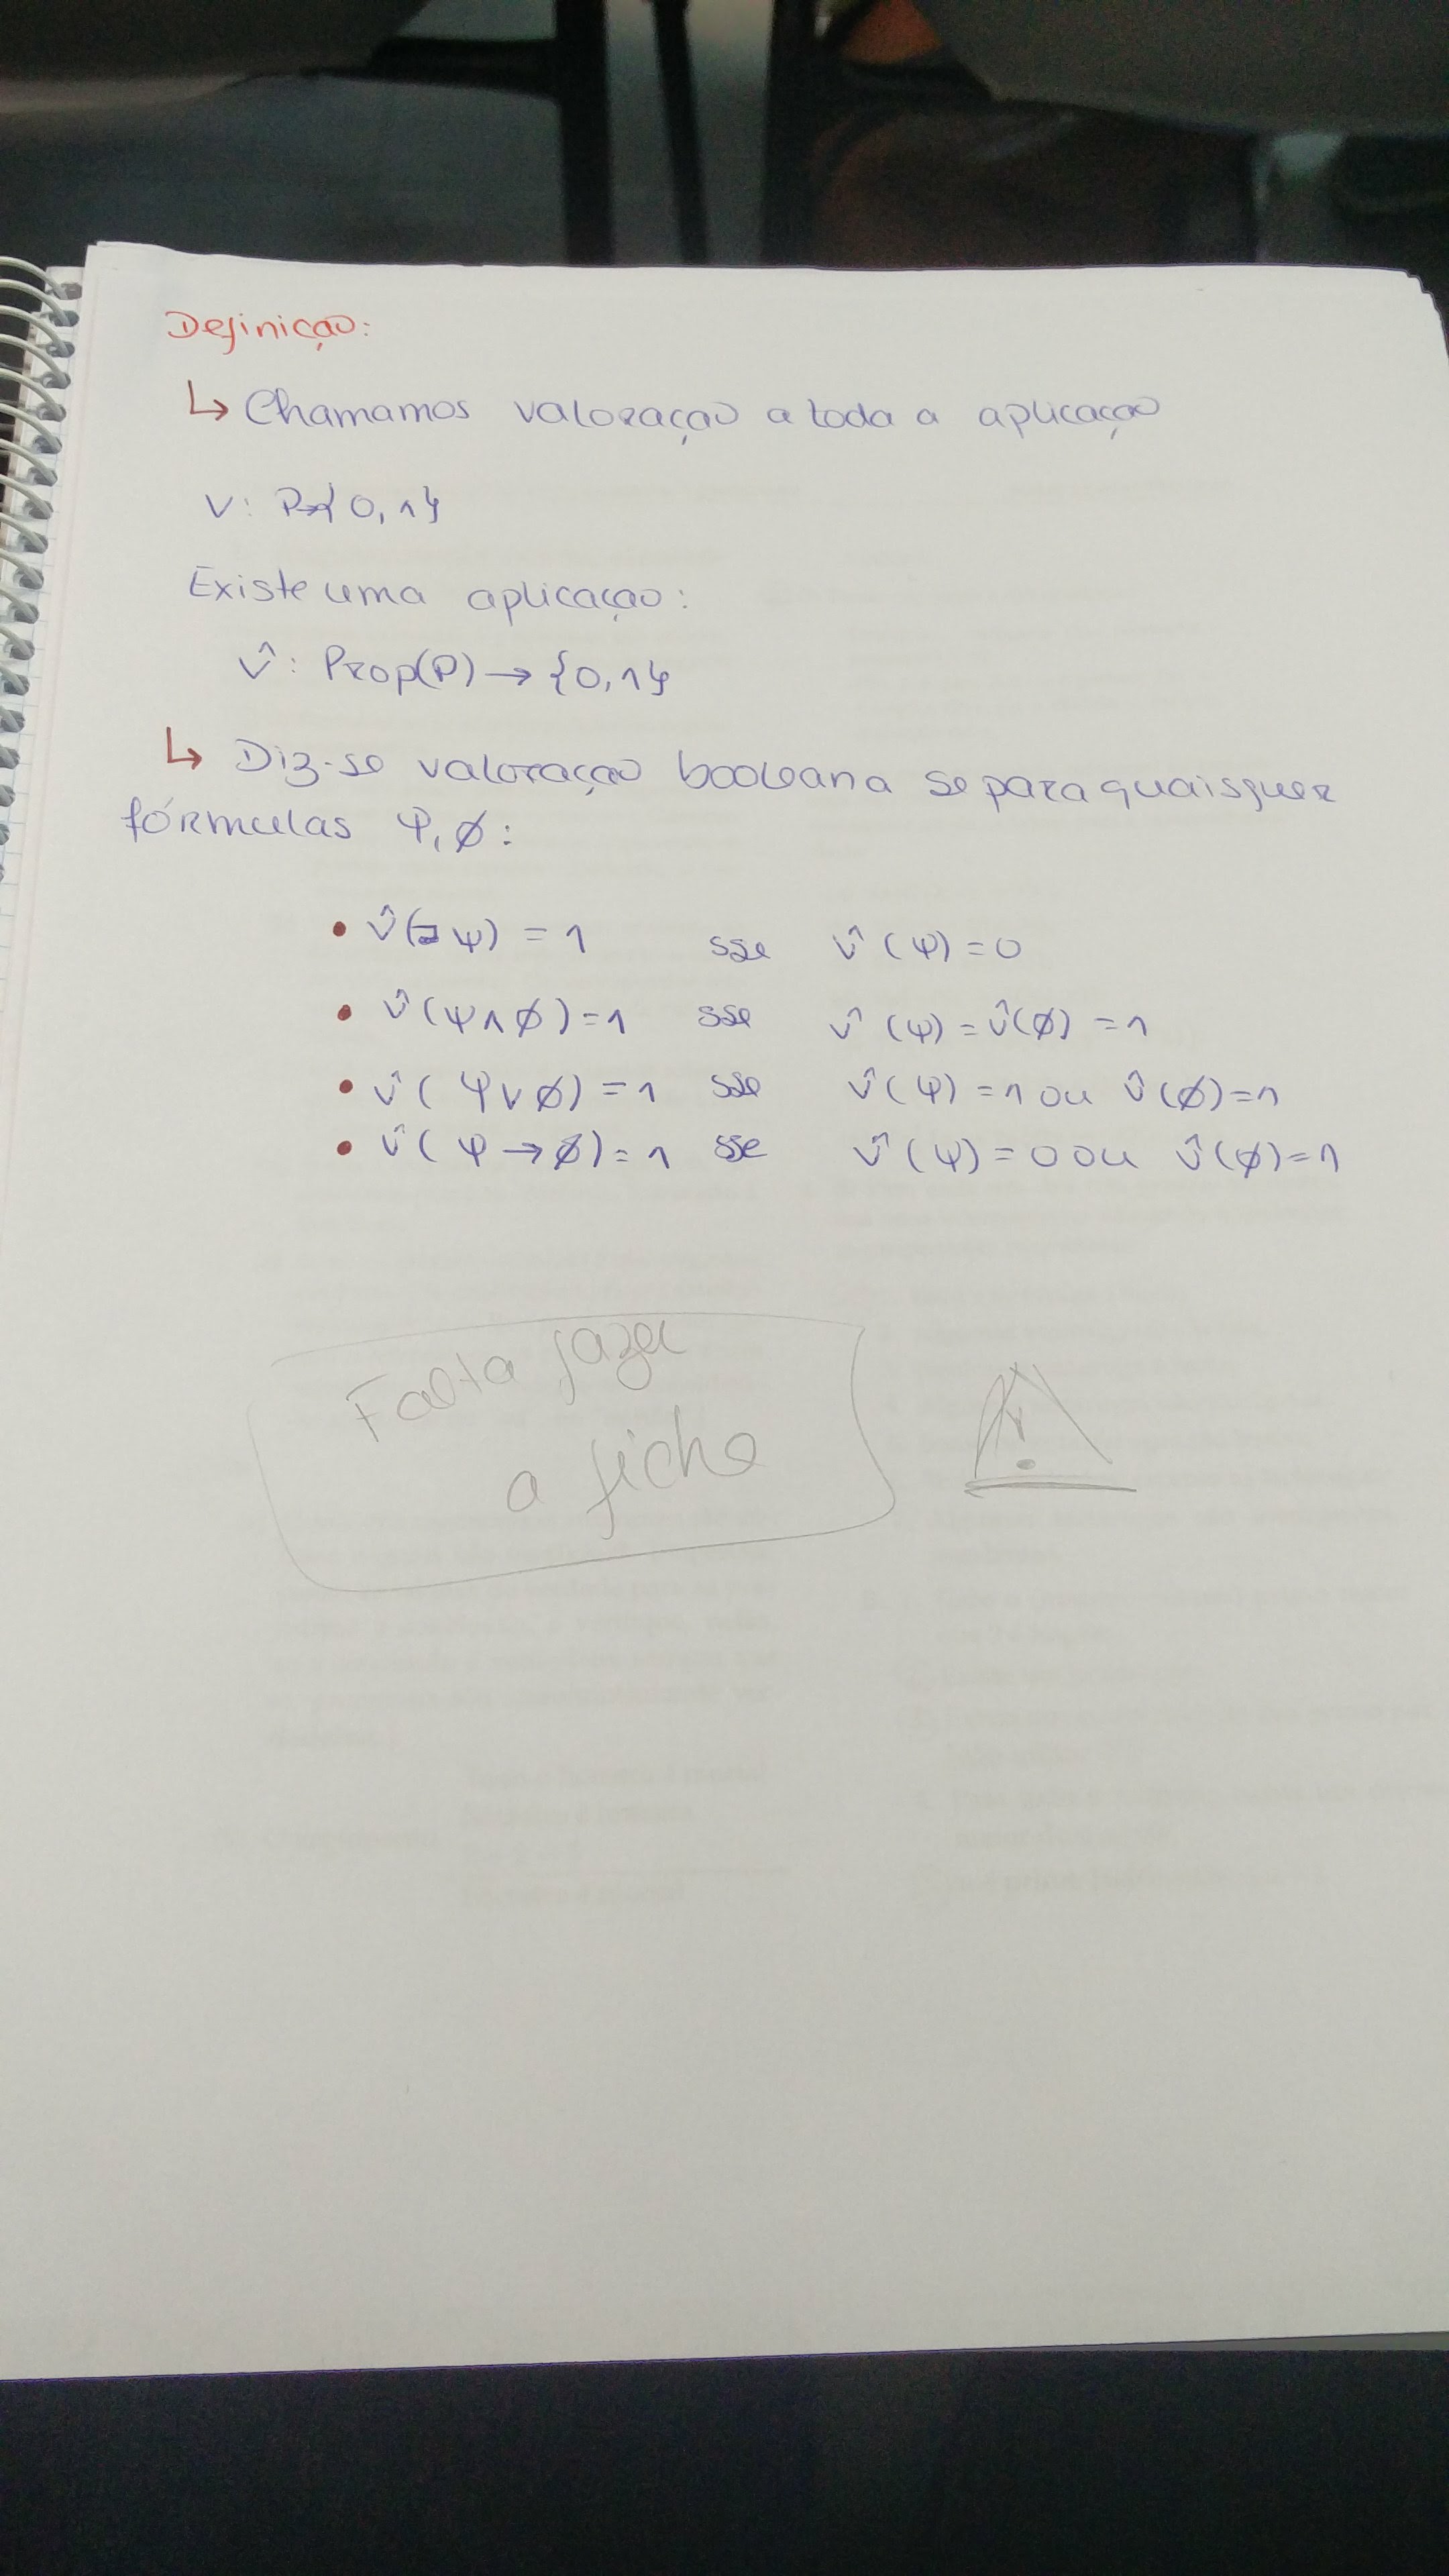 Definição:
↳ Chamamos valoração a toda a aplicação
V: P→{0,1}
Existe uma aplicação:
v̂: Prop(P) → {0,1}
↳ Diz-se valoração booleana se para quaisquer
fórmulas Ψ, ϕ:
• v̂(¬Ψ) = 1 sse v̂(Ψ) = 0
• v̂(Ψ∧ϕ) = 1 sse v̂(Ψ) = v̂(ϕ) = 1
• v̂(Ψ∨ϕ) = 1 sse v̂(Ψ) = 1 ou v̂(ϕ) = 1
• v̂(Ψ→ϕ) = 1 sse v̂(Ψ) = 0 ou v̂(ϕ) = 1
Falta fazer
a ficha